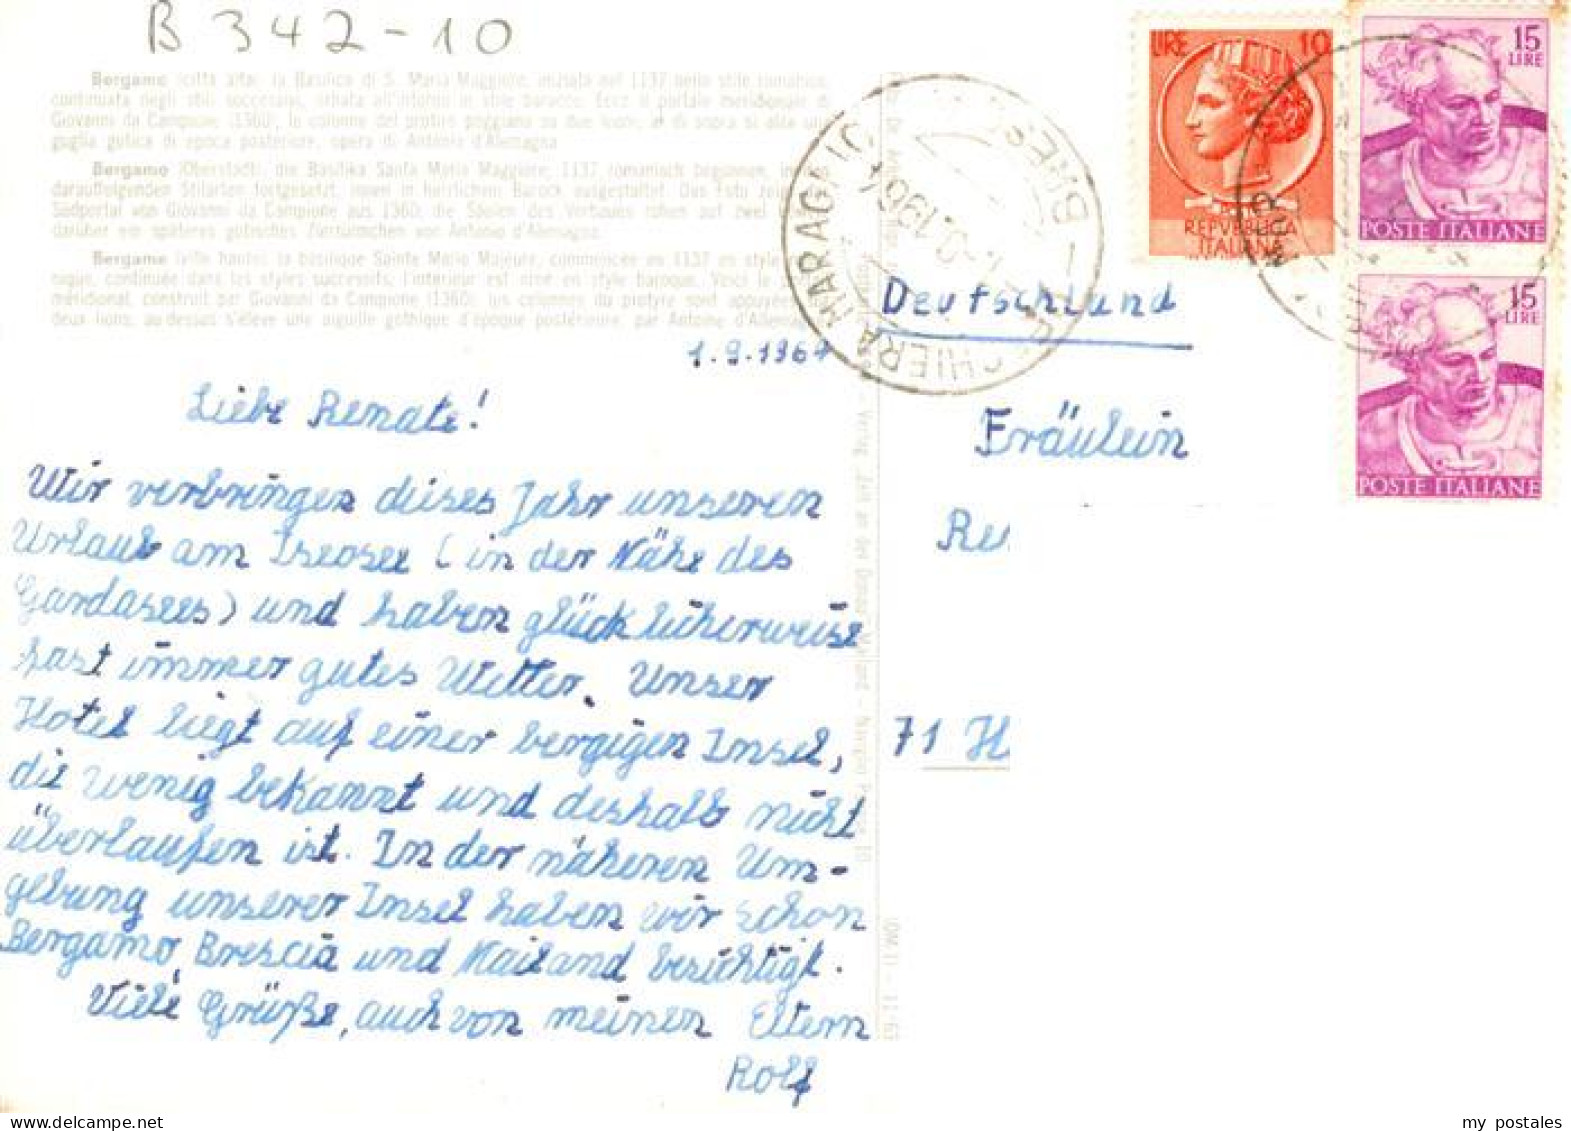 B 342-10
Bergamo (città alta): la Basilica di S. Maria Maggiore, iniziata nel 1137 nello stile romanico,
continuata negli stili successivi, all'interno in stile barocco. Ecco il portale meridionale di
Giovanni da Campione (1360); le colonne del protiro poggiano su due leoni, e di sopra si alza una
guglia gotica di epoca posteriore, opera di Antonio d'Alemagna.
Bergamo (Oberstadt): die Basilika Santa Maria Maggiore, 1137 romanisch begonnen, in
darauffolgenden Stilarten fortgesetzt, innen in herrlichem Barock ausgestaltet. Das Foto
Südportal von Giovanni da Campione aus 1360; die Säulen des Vorbaues ruhen auf zwei
darüber ein späteres gotisches Ziertürmchen von Antonio d'Alemagna.
Bergamo (ville haute): la basilique Sainte Marie Majeure, commencée en 1137 en style
continuée dans les styles successifs; l'intérieur est orné en style baroque. Voici le
méridional, construit par Giovanni da Campione (1360); les colonnes du protyre sont appuyées
deux lions, au-dessus s'élève une aiguille gothique d'époque postérieure, par Antoine d'Allemagne
1.9.1964
Liebe Renate!
Wir verbringen dieses Jahr unseren
Urlaub am Iseosee (in der Nähe des
Gardasees) und haben glücklicherweise
fast immer gutes Wetter. Unser
Hotel liegt auf einer bergigen Insel,
die wenig bekannt und deshalb nicht
überlaufen ist. In der näheren Um-
gebung unserer Insel haben wir schon
Bergamo, Brescia und Mailand besichtigt.
Viele Grüße, auch von meinen Eltern
Rolf
PESCHIERA MARAGLIO - BRESCIA
1964
LIRE 10
REPVBBLICA
ITALIANA
15
LIRE
POSTE ITALIANE
15
LIRE
POSTE ITALIANE
Deutschland
Fräulein
Re
71 H
my postales